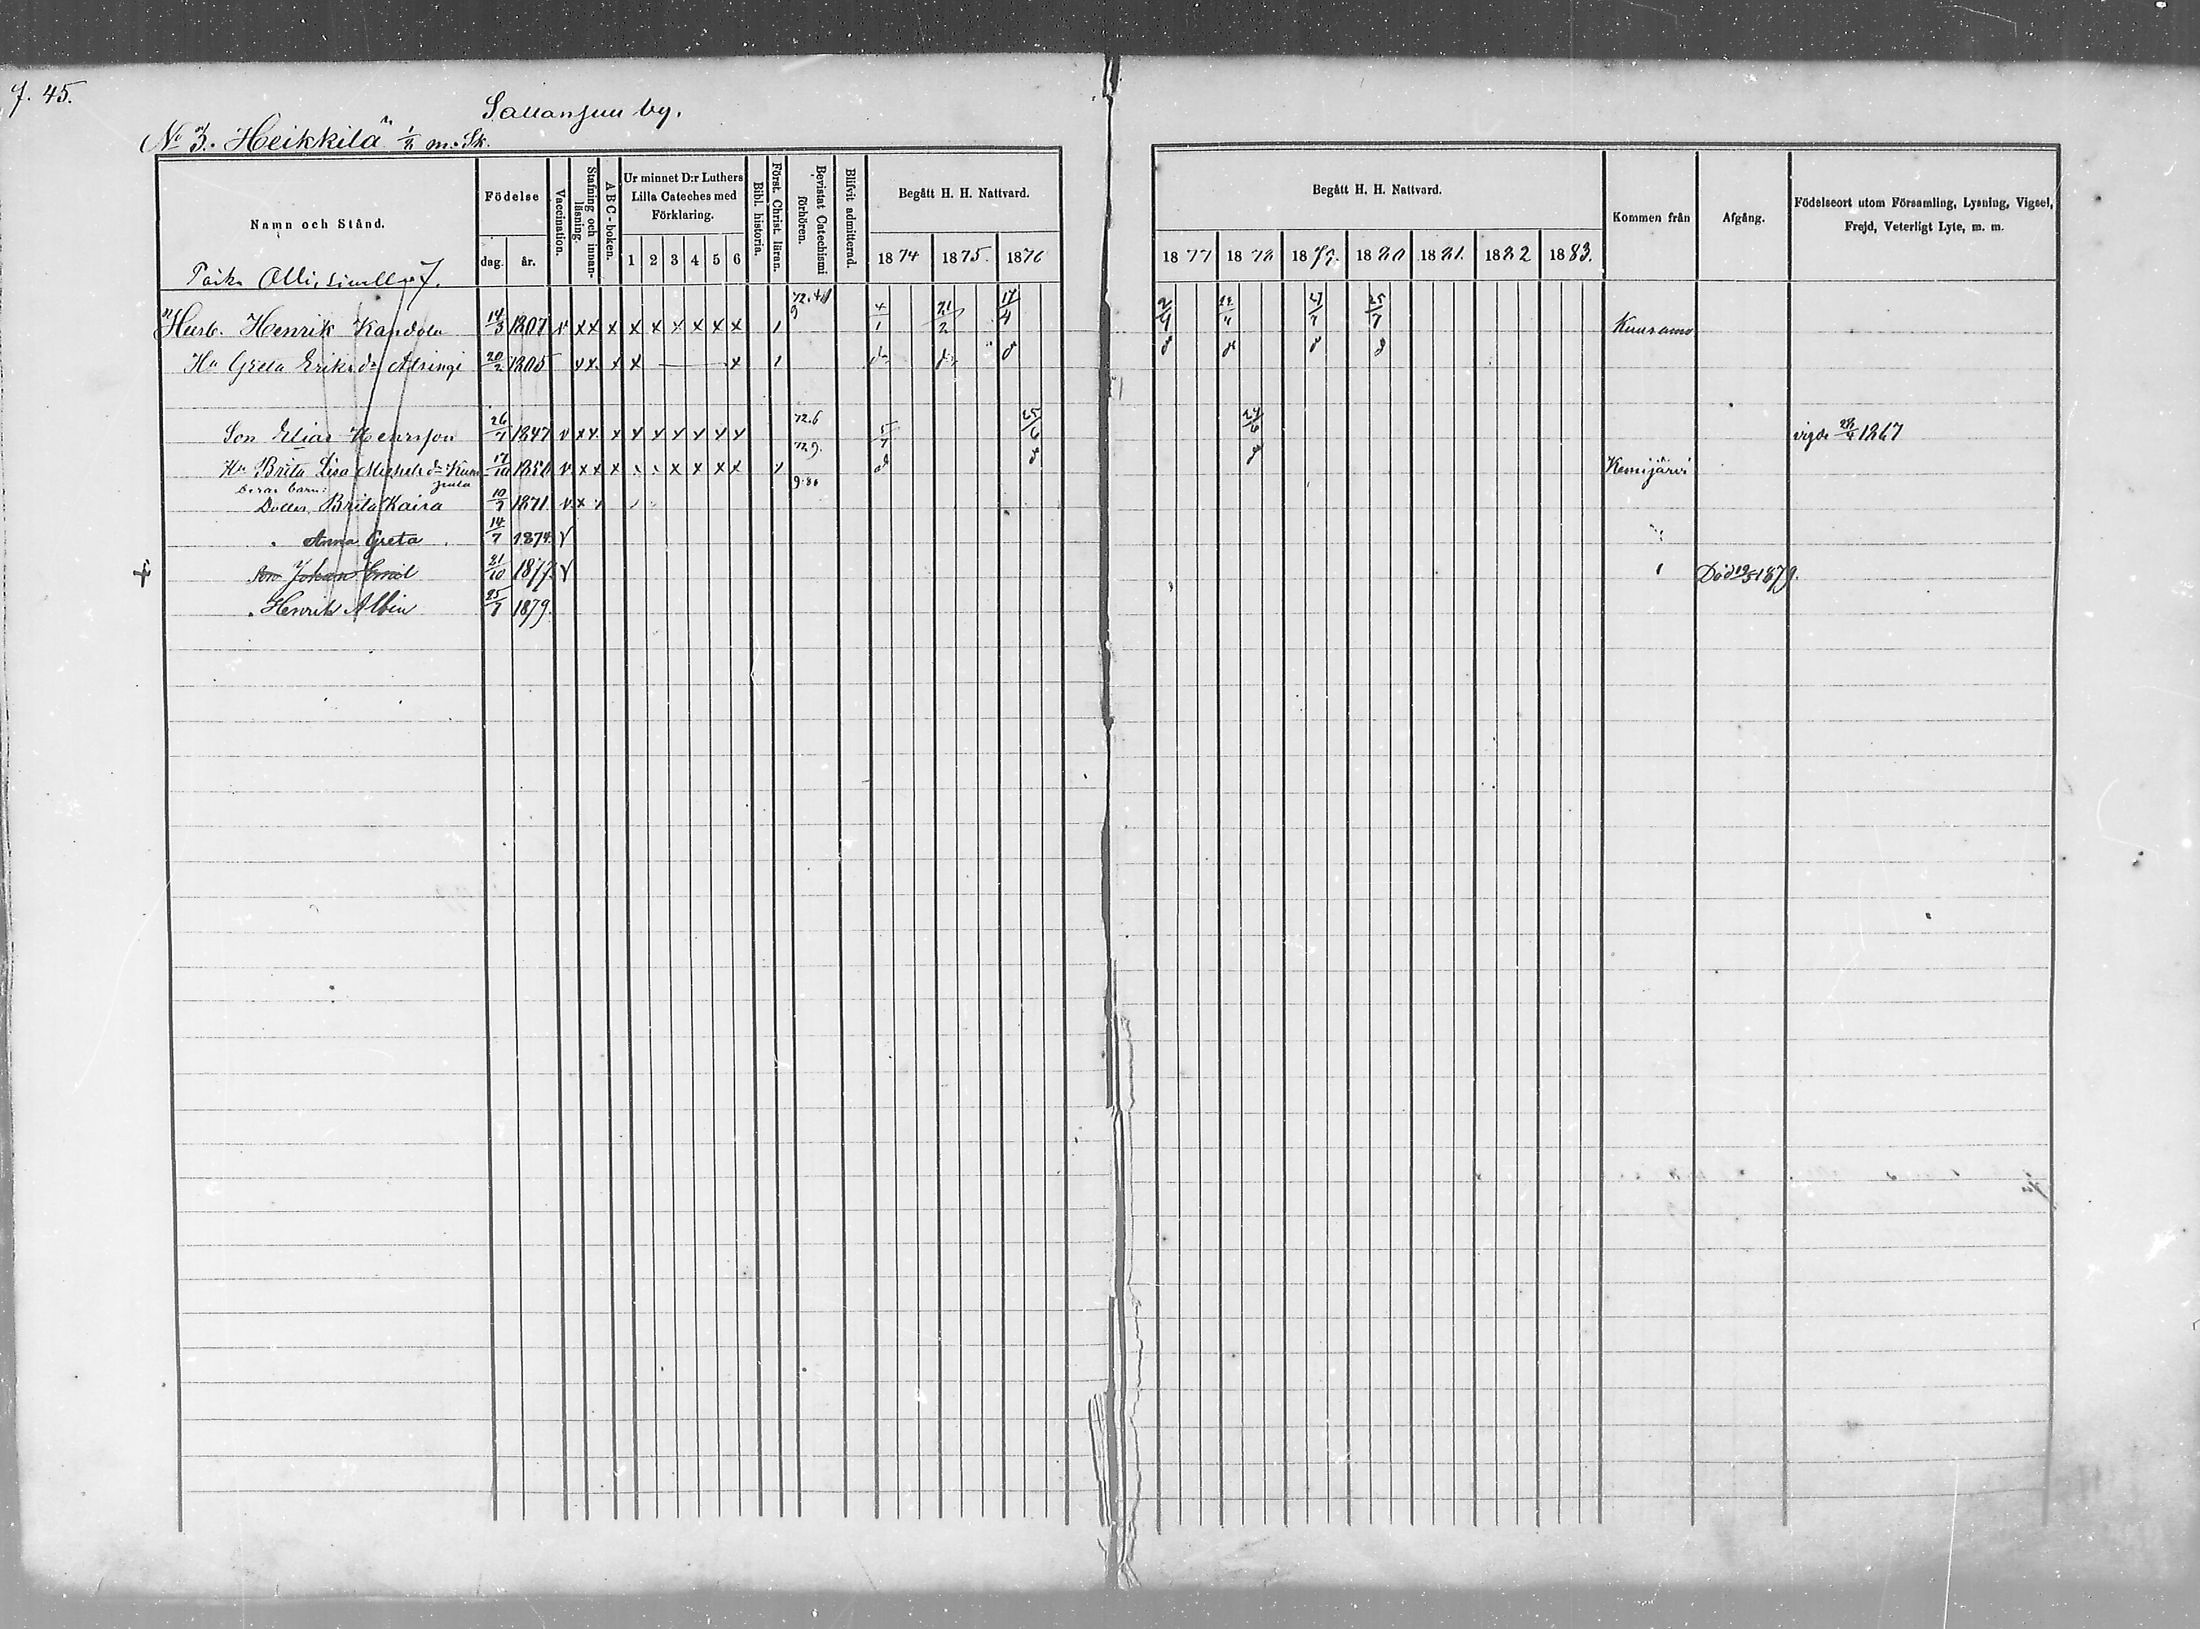 7. 45.
Sallansuu by.
No 3. Heikkilä 1/2 m. Sk.
Namn och Stånd.
Födelse
dag. år.
Vaccination.
Stafning och innanläsning.
ABC-boken.
Ur minnet D:r Luthers Lilla Cateches med Förklaring.
1 2 3 4 5 6
Bibl. historia.
Först. Christ. läran.
Bevistat Catechismi förhören.
Blifvit admitterad.
Begått H. H. Nattvard.
1874 1875. 1876
Begått H. H. Nattvard.
1877 1878 1879. 1880 1881. 1882 1883.
Kommen från
Afgång.
Födelseort utom Församling, Lysning, Vigsel, Frejd, Veterligt Lyte, m. m.
Olli
Husb. Henrik Kandola 14/3 1807 v x x x x x x x x x 1 4/1 21/2 17/4 Kuusamo
Hu Greta Eriks dr Alsingi 20/2 1805 v x x x x 1
Son Elias Henrsson 26/7 1847 v x x x x x x x x x 72.6 5/7 25/6 24/6 vigde 1867
Hu Brita Lisa Michels dr 17/10 1850 v x x x x x x x 72.9. Kemijärvi
deras barn:
9.80
Dotter Brita Kaisa 10/9 1871 v x
" Anna Greta 14/7 1874 v
+ Son Johan Emil 21/10 1877 v Död 19/5 1879.
" Henrik Albin 25/7 1879.